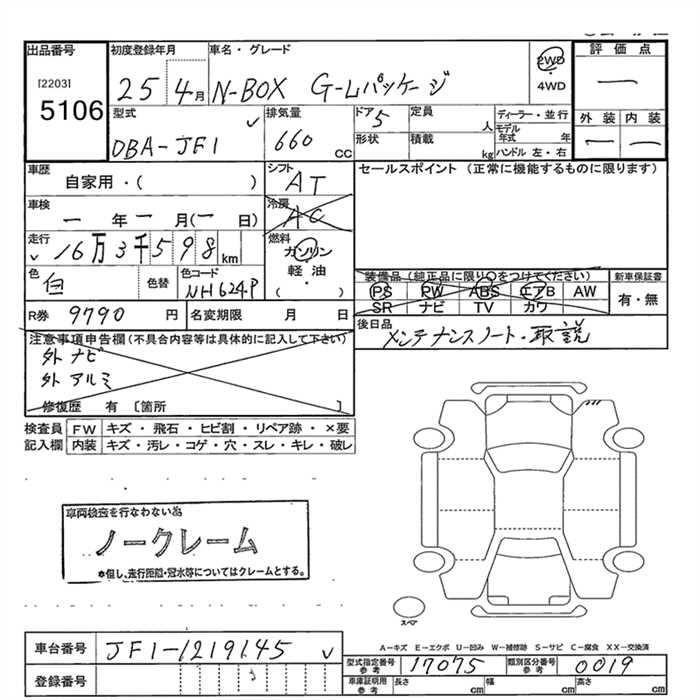 出品番号 初度登録年月 車名・グレード 評価点
[2203]
5106
25 4月 N-BOX G-Lパッケージ 2WD
4WD
一
型式 排気量 ドア 定員 ディーラー・並行 外装 内装
DBA-JF1 660 cc 5 人 モデル年式 年
形状 積載 kg ハンドル 左・右 一 一
車歴 シフト セールスポイント (正常に機能するものに限ります)
自家用・( ) AT
車検 冷房
一 年 一 月(一 日) AC
走行 燃料
16万3千598km ガソリン
軽・油
( )
色 色替 色コード
白 NH624P
装備品 (純正品に限り〇をつけてください) 新車保証書
PS PW ABS エアB AW 有・無
SR ナビ TV カワ
R券 9790 円 名変期限 月 日
後日品
メンテナンスノート・取説
注意事項申告欄 (不具合内容等は具体的に記入して下さい)
外 ナビ
外 アルミ
修復歴 有 [箇所 ]
検査員 FW キズ・飛石・ヒビ割・リペア跡・×要
記入欄 内装 キズ・汚レ・コゲ・穴・スレ・キレ・破レ
車両検査を行なわない為
ノークレーム
*但し、走行距離・冠水等についてはクレームとする。
スペア
A-キズ E-エクボ U-凹み W-補修跡 S-サビ C-腐食 XX-交換済
車台番号 JF1-1219145
登録番号
型式指定番号 参考 17075 類別区分番号 参考 0019
車庫証明用 参考 長さ cm 幅 cm 高さ cm